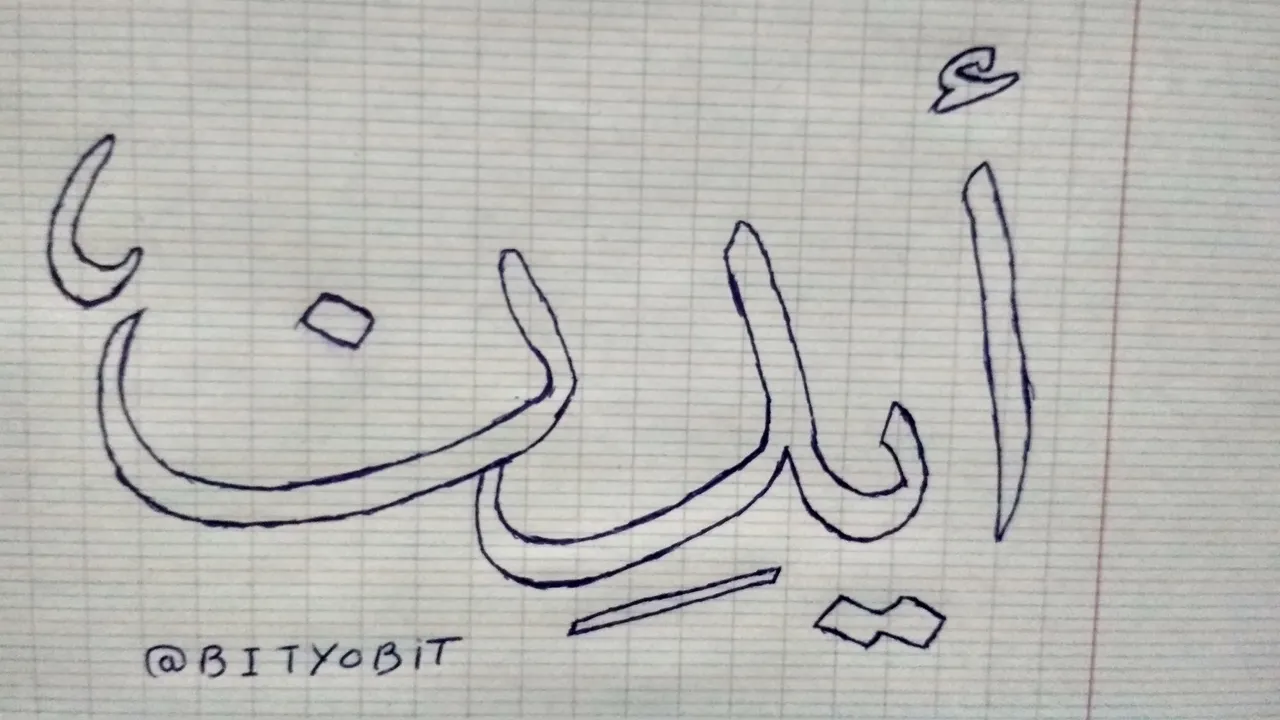 أيدِن
@BITYOBiT